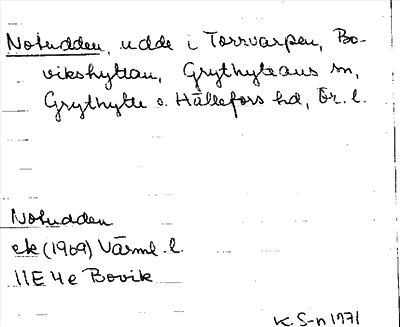 Notudden, udde i Torrvarpen, Bo-
vikshyttan, Grythytteans sn,
Grythytte o. Hällefors hd, Ör. l.
Notudden
ek (1969) Värml. l.
11E 4e Bovik
K S-n 1971